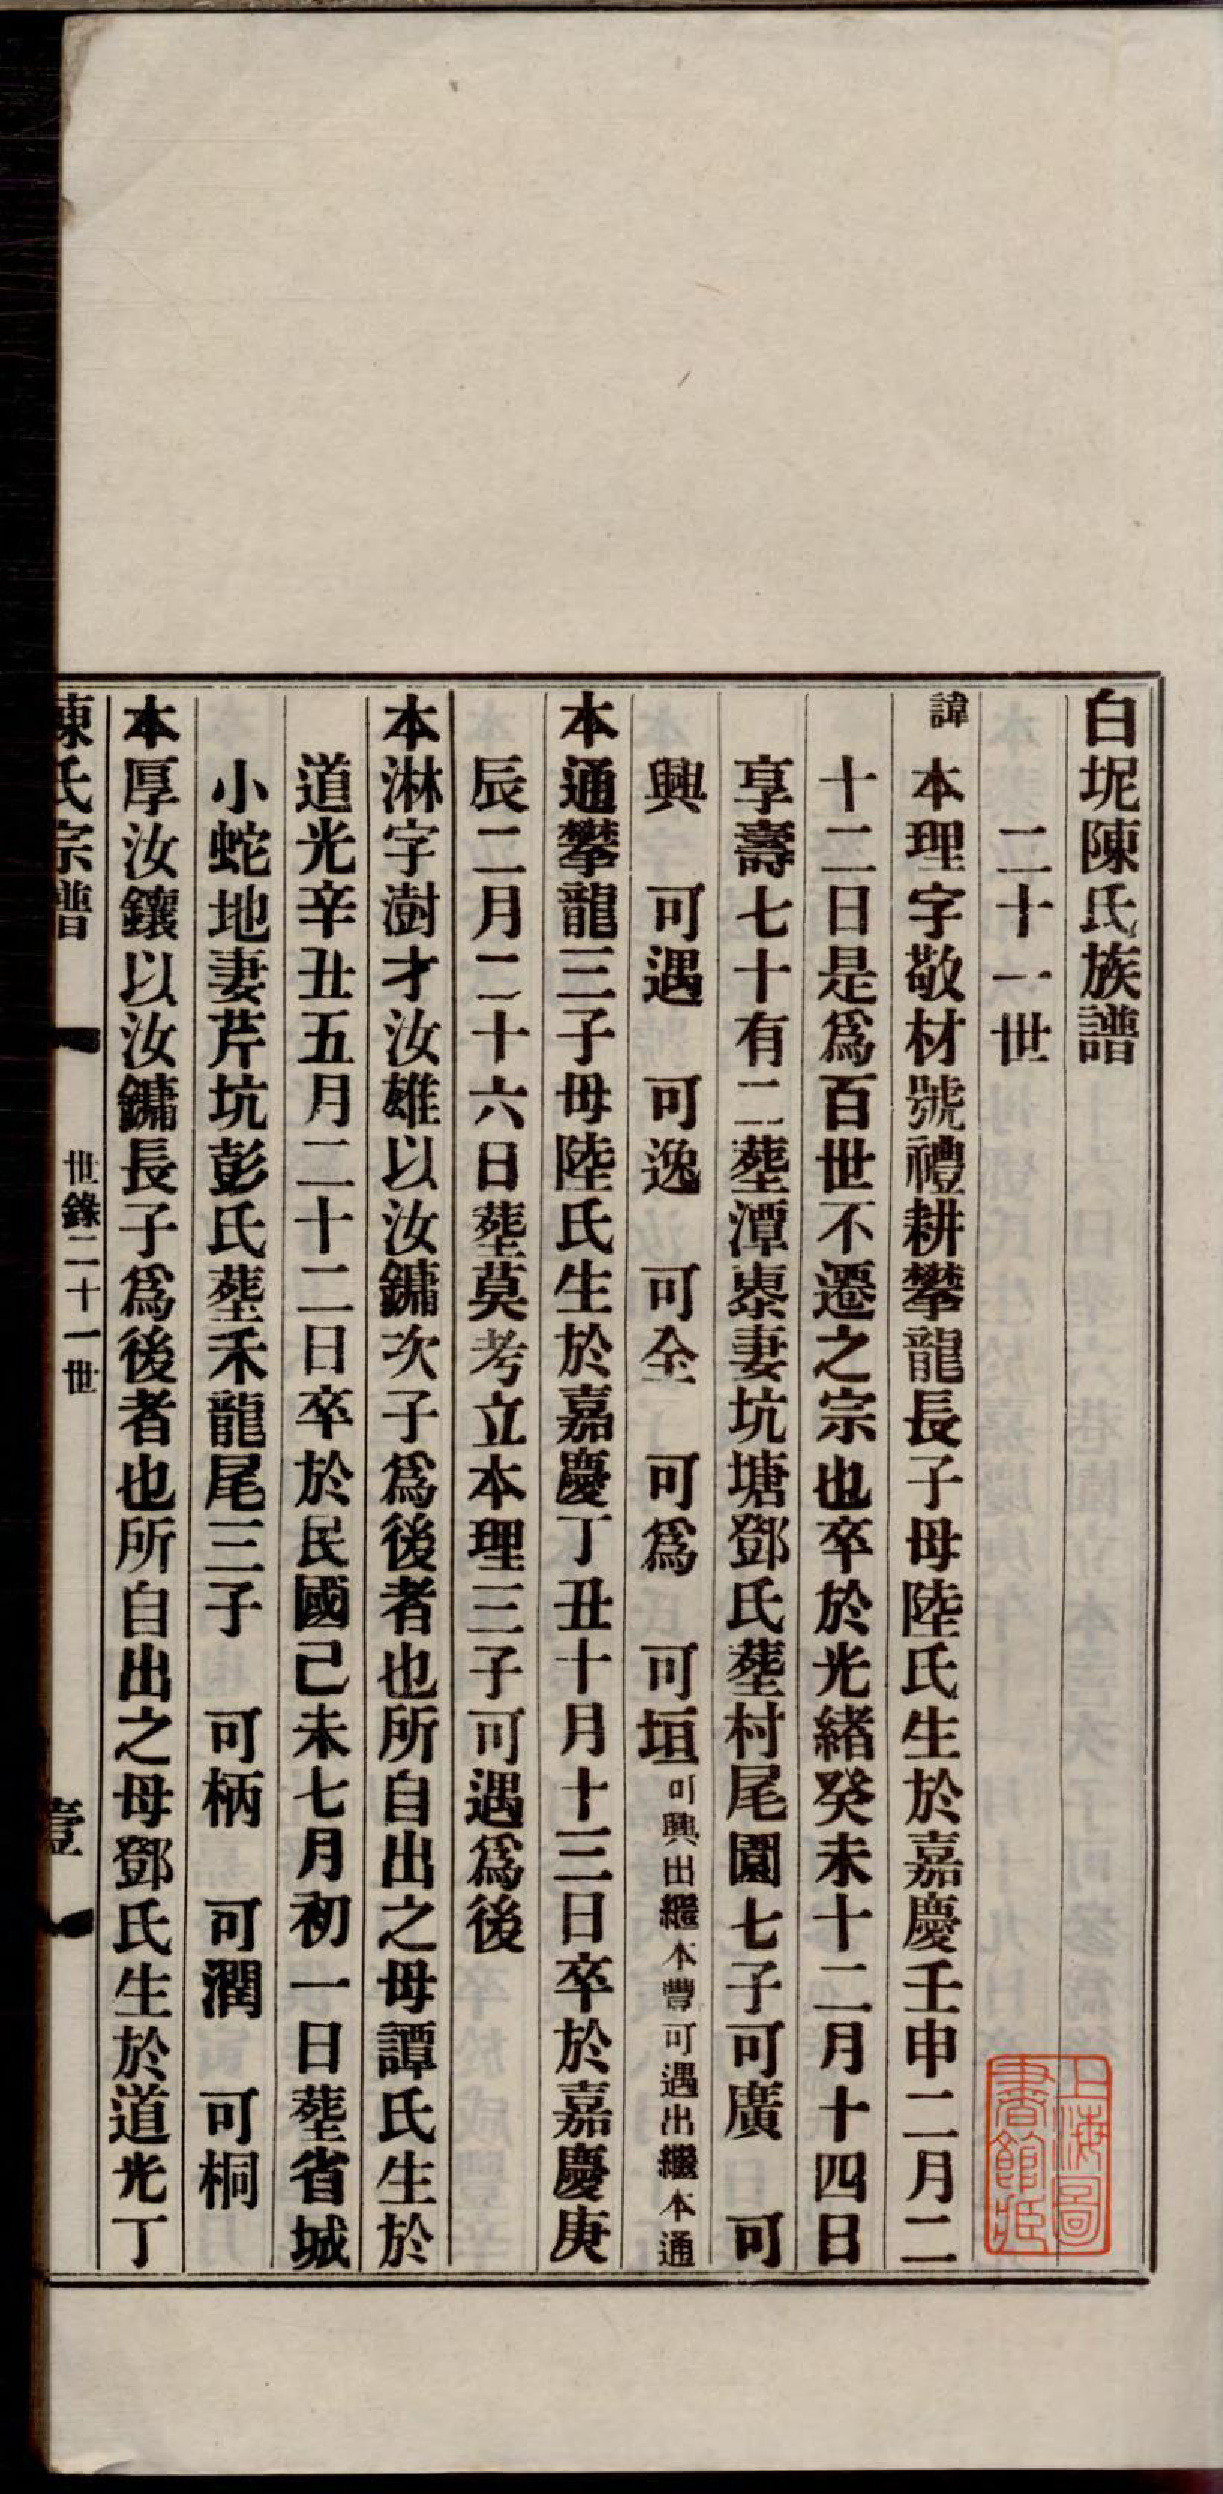 白坭陳氏族譜
二十一世
諱本理字敬材號禮耕攀龍長子母陸氏生於嘉慶壬申二月二
十二日是爲百世不遷之宗也卒於光緒癸未十二月十四日
享壽七十有二塟潭𡊮妻坑塘鄧氏塟村尾園七子可廣　可
興　可遇　可逸　可全　可爲　可垣可興出繼本豐可遇出繼本通
本通攀龍三子母陸氏生於嘉慶丁丑十月十三日卒於嘉慶庚
辰二月二十六日塟莫考立本理三子可遇爲後
本淋字澍才汝雄以汝鏞次子爲後者也所自出之母譚氏生於
道光辛丑五月二十二日卒於民國己未七月初一日塟省城
小蛇地妻芹坑彭氏塟禾龍尾三子　可柄　可潤　可桐
本厚汝鑲以汝鏞長子爲後者也所自出之母鄧氏生於道光丁
陳氏宗譜
世錄二十一世
壹
上海圖書館藏